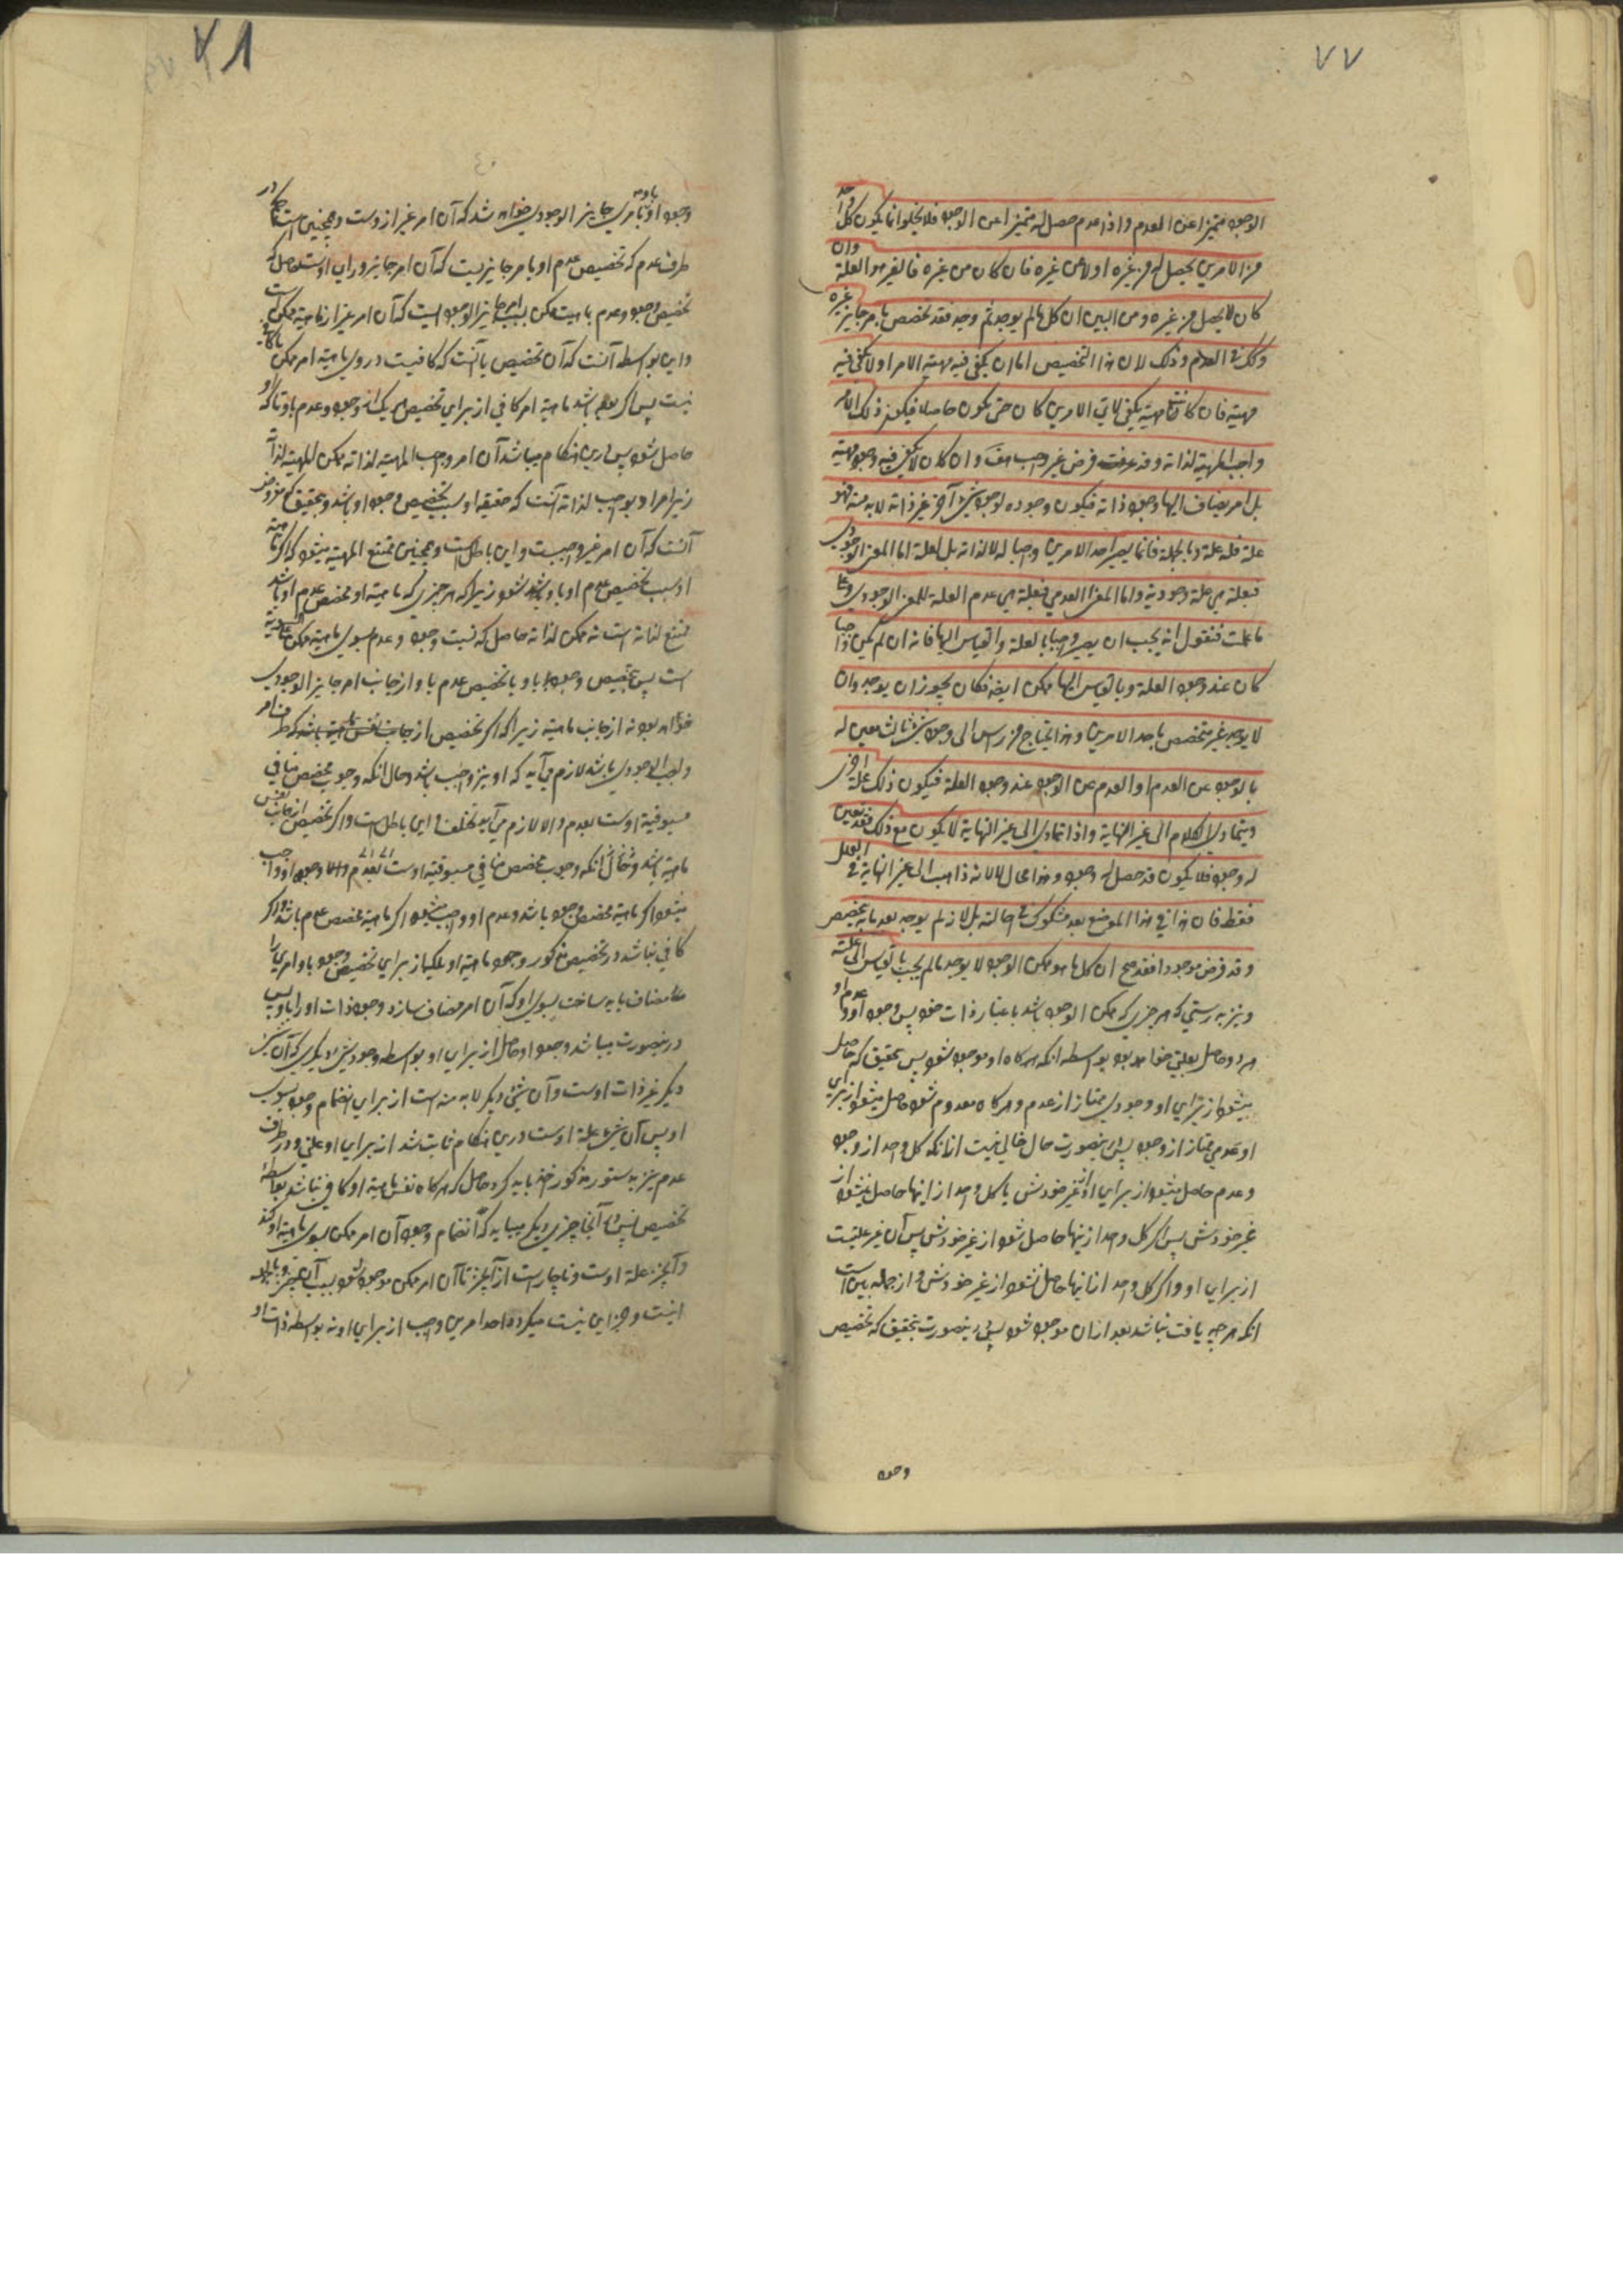 ٧٧
الوجود متميزا عن العدم واذا عدم حصل له متميزا عن الوجود فلا يخلو اما يكون كل واحد
من الامرين يحصل له من غيره اولا عن غيره فان كان من غيره فالغير هو العلة وان
كان لا يحصل من غيره ومن البين ان كل ما لم يوجد ثم وجد فقد تخصص بامر جايز غيره
وكك فى العدم وذلك لان هذا التخصيص اما ان يكفى فيه مهية الامر او لا يكفى فيه
مهية فان كانت مهية يكفى لاى الامرين كان حتى يكون حاصلا فيكون ذلك الامر
واجب المهية لذاته وقد فرض غير واجب هف وان كان لا يكفى فيه وجود مهية
بل امر يضاف اليها وجود ذاته فيكون وجوده لوجود شئ آخر غير ذاته لابد منه فهو
علة فله علة وبالجملة فانما يصير احد الامرين واجبا له لا لذاته بل لعلة اما المعنى الوجودي
فبعلة هى علة وجودية واما المعنى العدمي فبعلة هى عدم العلة للمعنى الوجودي وعلى
ما علمت فنقول انه يجب ان يصير واجبا بالعلة وبالقياس اليها فانه ان لم يكن واجبا
كان عند وجود العلة وبالقياس اليها ممكن ايضا فكان يجوز ان يوجد وان
لا يوجد غير متخصص باحد الامرين وهذا يحتاج من رأس الى وجود شئ ثالث يعين له
بالوجود عن العدم او العدم عن الوجود عند وجود العلة فيكون ذلك علة اخرى
ويتمادى الكلام الى غير النهاية واذا تمادى الى غير النهاية لا يكون مع ذلك فقد تعين
له وجود فلا يكون قد حصل له وجود وهذا محال لا لانه ذاهب الى غير النهاية فى العلل
فقط فان هذا فى هذا الموضع بعد مشكوك فى احالته بل لانه لم يوجد بعد ما به تخصص
وقد فرض موجودا فقد صح ان كل ما هو ممكن الوجود لا يوجد ما لم يجب بالقياس الى علته
ونيز بدرستى كه هر چيزى كه ممكن الوجود باشد باعتبار ذات خود پس وجود او و عدم او
هر دو حاصل بعلتى خواهد بود بواسطه انكه هر كاه او موجود شود پس بتحقيق كه حاصل
ميشود از براي او وجودي ممتاز از عدم وهر كاه معدوم شود حاصل ميشود از براي
او عدمي ممتاز از وجود پس درينصورت حال خالي نيست از انكه كل واحد از وجود
وعدم حاصل ميشود از براي او از غير خودش يا كل واحد از اينها حاصل نميشود از
غير خودش پس اكر كل واحد از ينها حاصل شود از غير خودش پس آن غير علتست
از براي او واكر كل واحد از اينها حاصل نشود از غير خودش و از جمله بين است
انكه هر چه يافت نباشد بعد ازان موجود شود پس درينصورت بتحقيق كه تخصيص
وجود
٧٨
وجود او با و به امري جايز الوجودي خواهد شد كه آن امر غير ازوست وهمچنين است در
طرف عدم كه تخصيص عدم او بامر جايزيست كه آن امر جايز وراي اوست حاصل كه
تخصيص وجود وعدم بماهيت ممكن بسبب امر جايز الوجوديست كه آن امر غير از ماهية ممكن است
واين بواسطه آنست كه آن تخصيص يا آنست كه كافيست در وي ماهية امر ممكن يا كافي
نيست پس اكر بوده باشد ماهية امر كافي از براي تخصيص هر يك از وجود وعدم باو تا كه او
حاصل شود پس درين هنكام ميباشد آن امر واجب المهية لذاته نه ممكن المهية لذاته
زيرا مراد بواجب لذاته آنست كه حقيقة او سبب تخصيص وجود او باشد وبتحقيق كه مفروض
آنست كه آن امر غير واجبست واين باطلست وهمچنين ممتنع المهية ميشود اكر ماهية
او سبب تخصيص عدم او باو باشد زيرا كه هر چيزي كه ماهية او مخصص عدم او باشد
ممتنع لذاته است نه ممكن لذاته حاصل كه نسبت وجود و عدم بسوي ماهية ممكن
است پس تخصيص وجود باو يا تخصيص عدم باو از جانب امر جايز الوجودي
خواهد بود نه از جانب ماهية زيرا كه اكر تخصيص از جانب نفس ماهية باشد
واجب الوجودي باشد لازم مي آيد كه او نيز واجب باشد وحال انكه وجوب مخصص منافي
مسبوقية اوست بعدم والا لازم مي آيد تخلف واين باطل است واكر تخصيص از جانب نفس
ماهية باشد وحال انكه وجوب مخصص منافي مسبوقية اوست بعدم والا وجود او واجب
ميشود اكر ماهية مخصص وجود باشد وعدم او واجب ميشود اكر ماهية مخصص عدم باشد واكر
كافي نباشد در تخصيص مذكور وجود ماهية او بلكه از براي تخصيص وجود باو امري را
مضاف بايد ساخت بسوي او كه آن امر مضاف سازد وجود ذات او را باو پس
درينصورت ميباشد وجود او حاصل از براي او بواسطه وجود شئ ديكري كه آن شئ
ديكر غير ذات اوست وآن شئ ديكر لابد منه است از براي انضمام وجود بسوي
او پس آن شئ علة اوست درين هنكام ثابت شد از براي او علتي ودر طرف
عدم نيز بدستور مذكور اخذ بايد كرد حاصل كه هر كاه نفس ماهية او كافي نباشد بواسطه
تخصيص پس آنجا چيزي ديكر ميبايد كه انضمام وجود آن امر ممكن بسوي ماهية او كند
وآنچيز علة اوست وناچارست از آنچيز تا آن امر ممكن موجود شود بسبب آنچيز وبالجمله
اينست وجز اين نيست ميكردد احد امرين واجب از براي او نه بواسطه ذات او